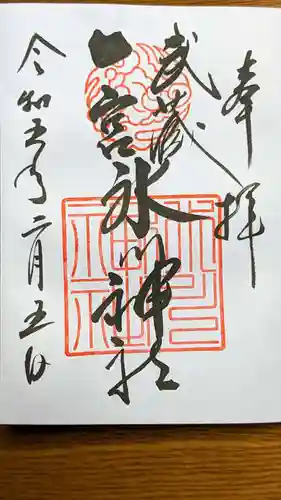 奉拝
武蔵
一宮氷川神社
令和五年二月五日